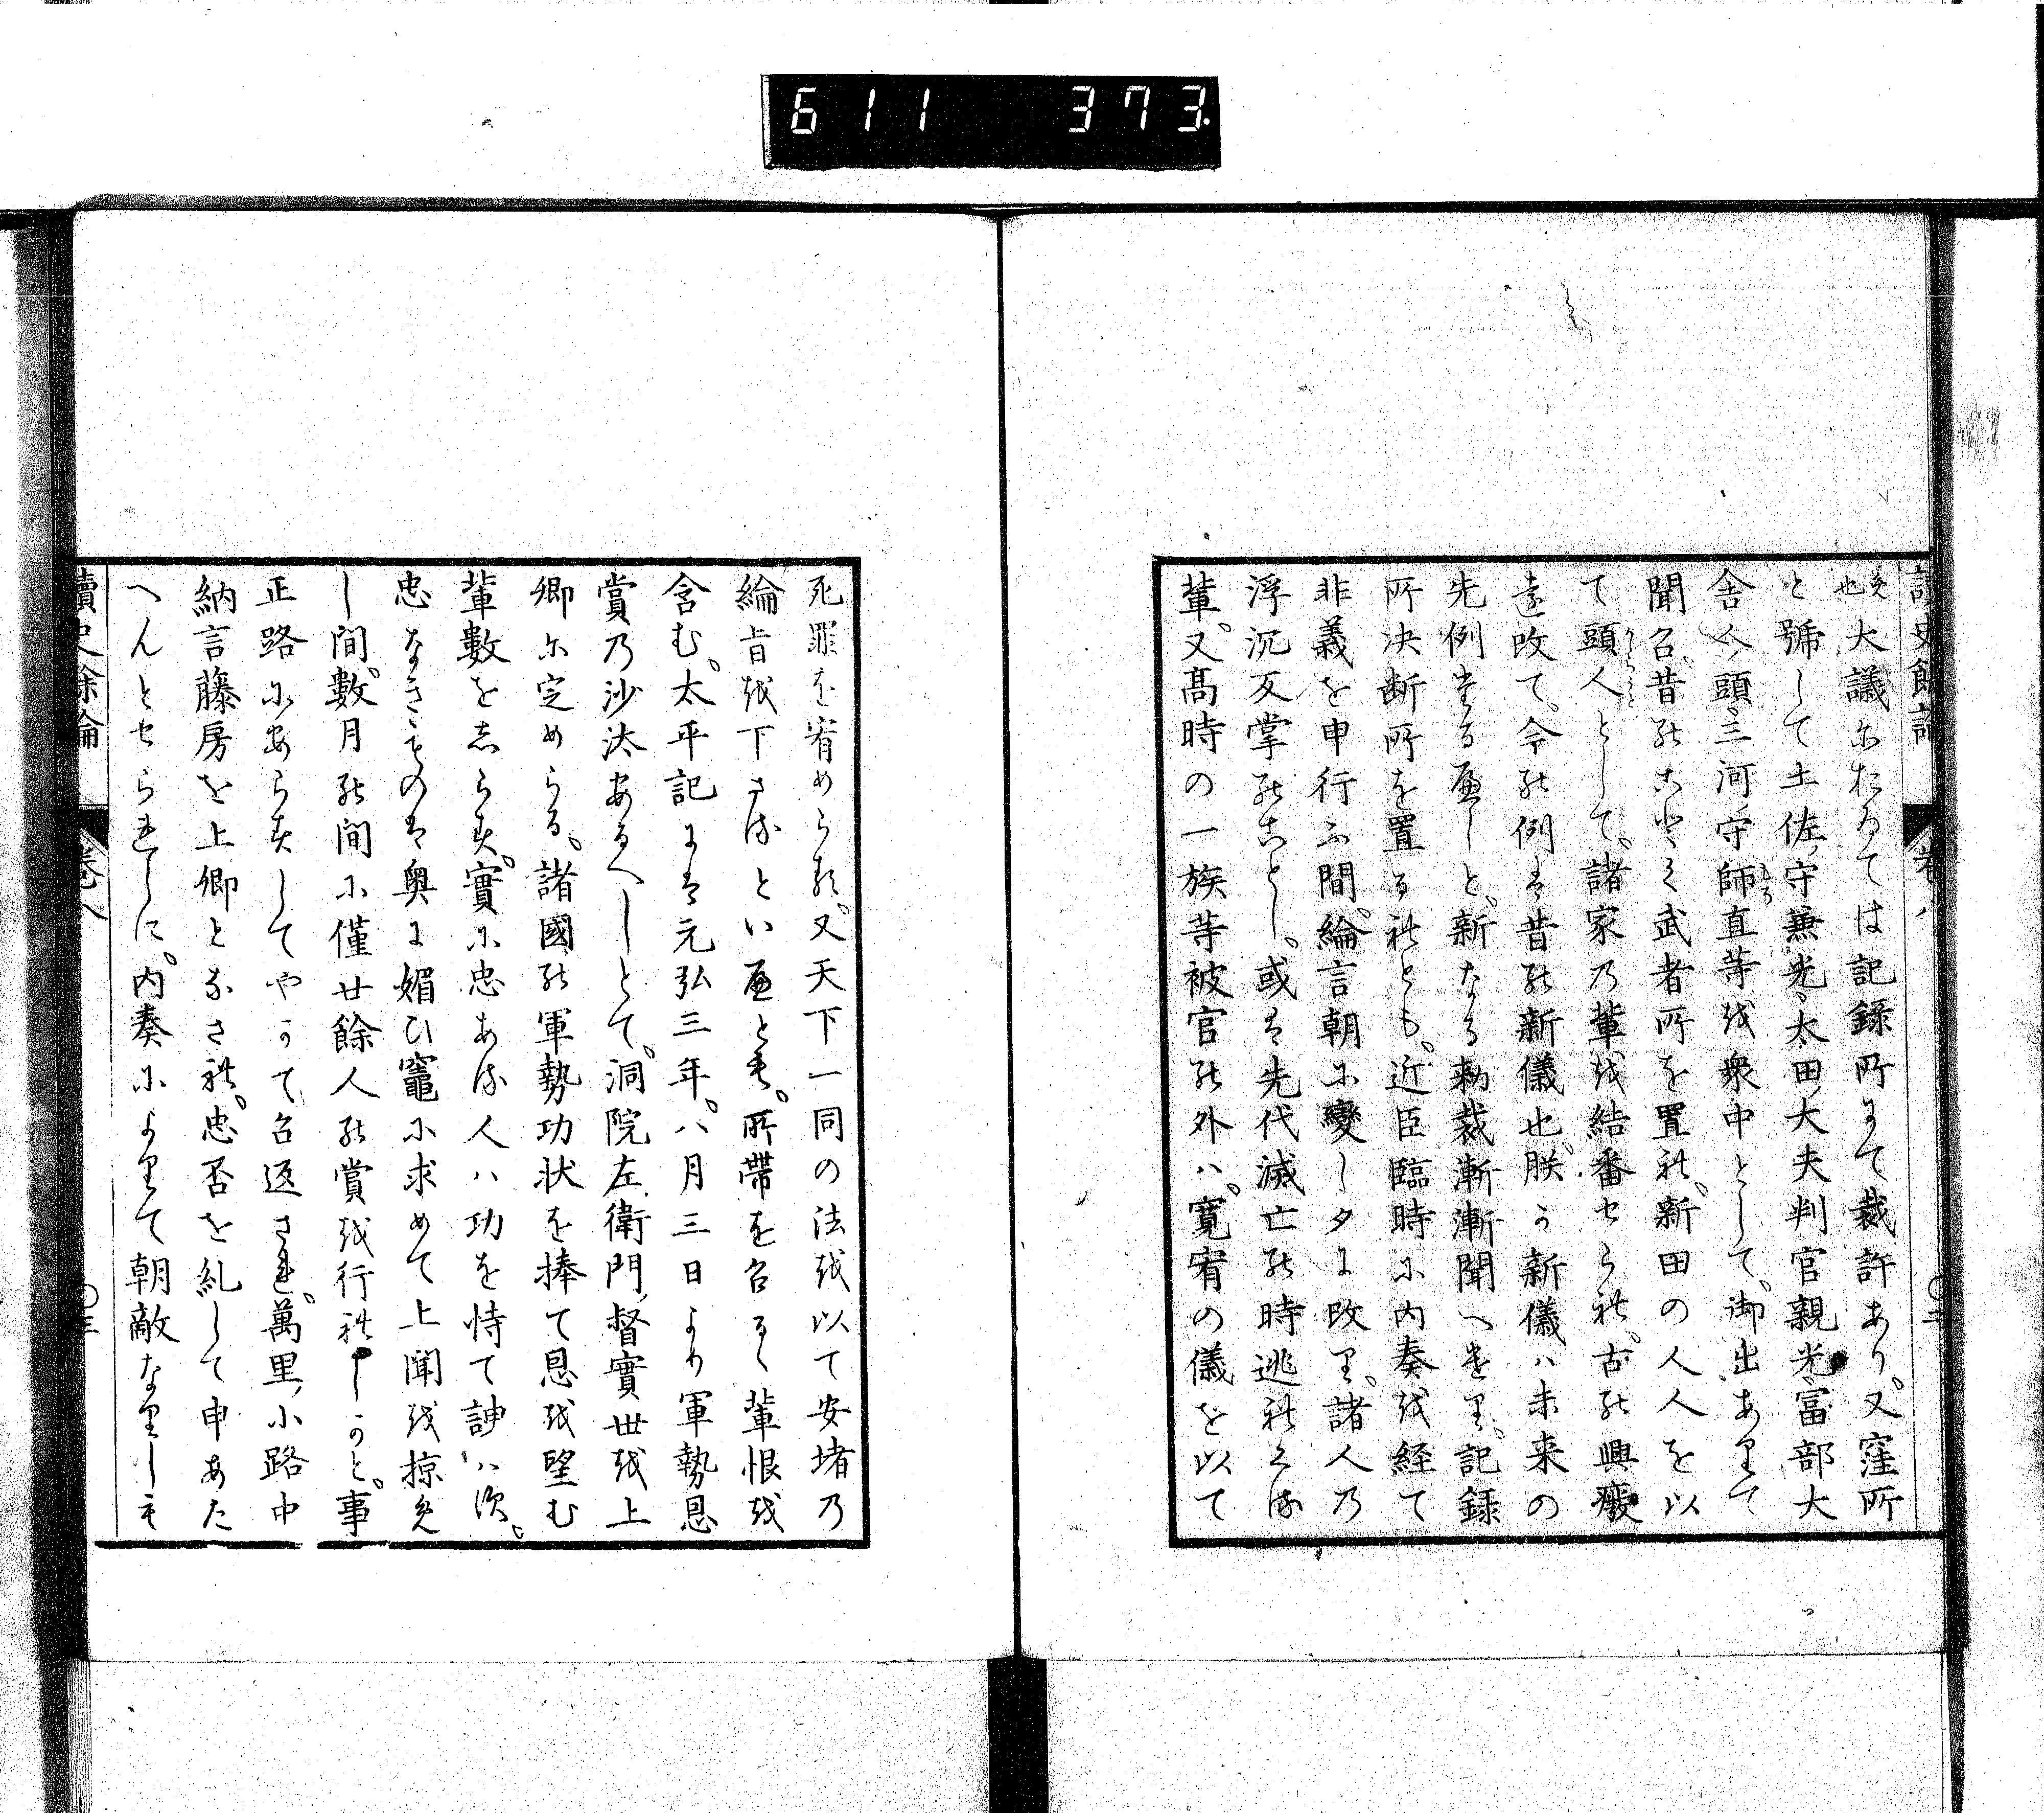 611 373.
讀史餘論 卷八
え也大議においては記録所にて裁許あり、又窪所
と號して土佐守兼光、太田大夫判官親光、富部大
舎人頭、三河守師直等を衆中として、御出ありて
聞召、昔のことく武者所を置れ、新田の人人を以
て頭人として、諸家の輩を結番せられ、古の興廢
遠改て、今の例は昔の新儀也、朕か新儀ハ未来の
先例たるへしと、新なる勅裁漸漸聞へけり、記録
所決断所を置るれとも、近臣臨時に内奏を経て
非義を申行ふ間、綸言朝に變し夕に改り、諸人の
浮沉反掌のことし、或は先代滅亡の時逃れくる
輩、又髙時の一族等被官の外ハ、寛宥の儀を以て
死罪を宥めらる、又天下一同の法を以て安堵の
綸旨を下さるといへとも、所帶を召るゝ輩恨を
含む、太平記には元弘三年、八月三日より軍勢恩
賞の沙汰あるへしとて、洞院左衛門督實世を上
卿に定めらる、諸國の軍勢功状を捧て恩を望む
輩數をしらす、實に忠ある人ハ功を恃て諛ハす、
忠なきものは奥に媚ひ竈に求めて上聞を掠え
し間、數月の間に僅廿餘人の賞を行れしかと、事
正路にあらすしてやかて召返され、萬里小路中
納言藤房を上卿となされ、忠否を糺して申あた
へんとせられしに、内奏によりて朝敵なりしも
讀史餘論 卷八 〇三